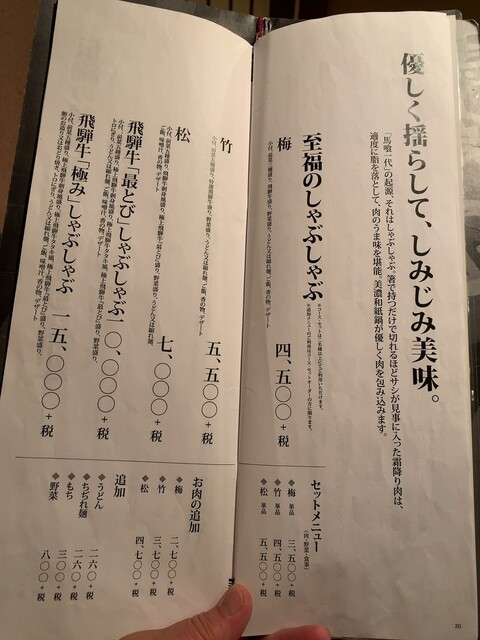 優しく揺らして、しみじみ美味。
「馬喰一代」の起源、それはしゃぶしゃぶ。箸で持つだけで切れるほどサシが見事に入った霜降り肉は、
適度に脂を落として、肉のうま味を堪能。美濃和紙鍋が優しく肉を包み込みます。
至福のしゃぶしゃぶ
梅 四、五〇〇+税
竹 五、五〇〇+税
松 七、〇〇〇+税
飛騨牛「最とび」しゃぶしゃぶ 一〇、〇〇〇+税
飛騨牛「極み」しゃぶしゃぶ 一五、〇〇〇+税
セットメニュー
(肉・野菜・食事)
◆梅 単品 三、五〇〇+税
◆竹 単品 四、五〇〇+税
◆松 単品 五、五〇〇+税
お肉の追加
◆梅 二、七〇〇+税
◆竹 三、七〇〇+税
◆松 四、七〇〇+税
追加
◆うどん 二六〇+税
◆ちぢれ麺 二六〇+税
◆もち 三〇〇+税
◆野菜 八〇〇+税
20